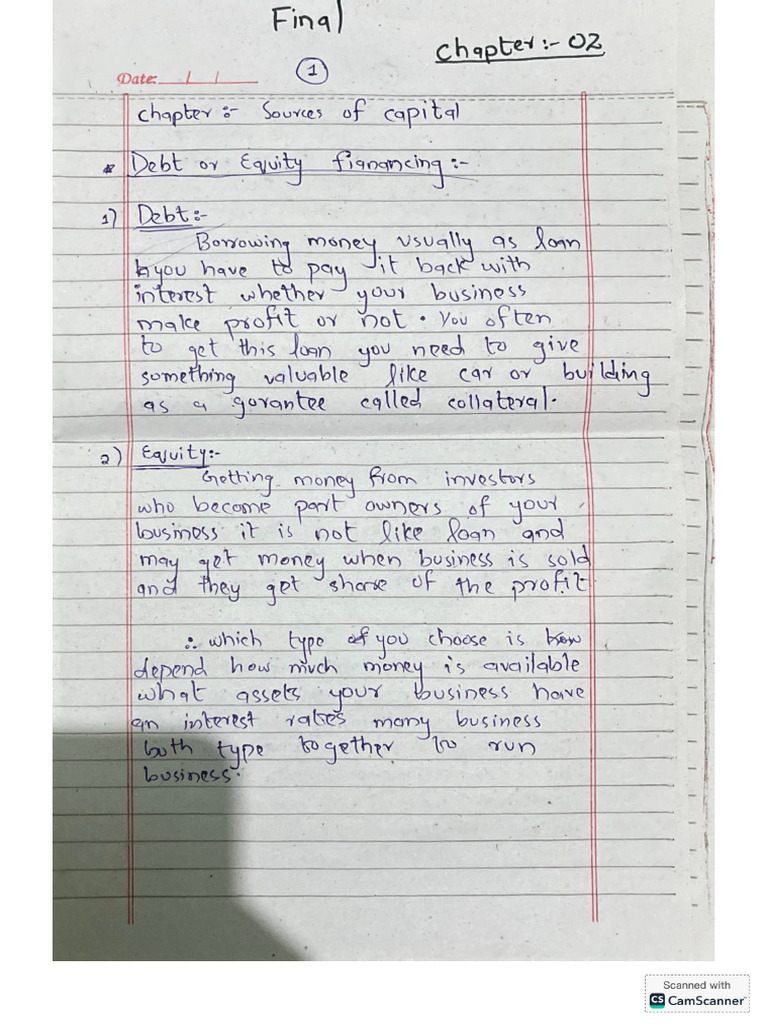 Final
Chapter:- 02
1
Date: / /
Chapter:- Sources of capital
* Debt or Equity fianancing:-
1) Debt:-
Borrowing money usually as loan
& you have to pay it back with
interest whether your business
make profit or not. You often
to get this loan you need to give
something valuable like car or building
as a gorantee called collateral.
2) Equity:-
Getting money from investors
who become part owners of your
business it is not like loan and
may get money when business is sold
and they get share of the profit
∴ which type of you choose is
depend how much money is available
what assets your business have
an interest rates many business
both type together to run
business.
Scanned with
CS CamScanner